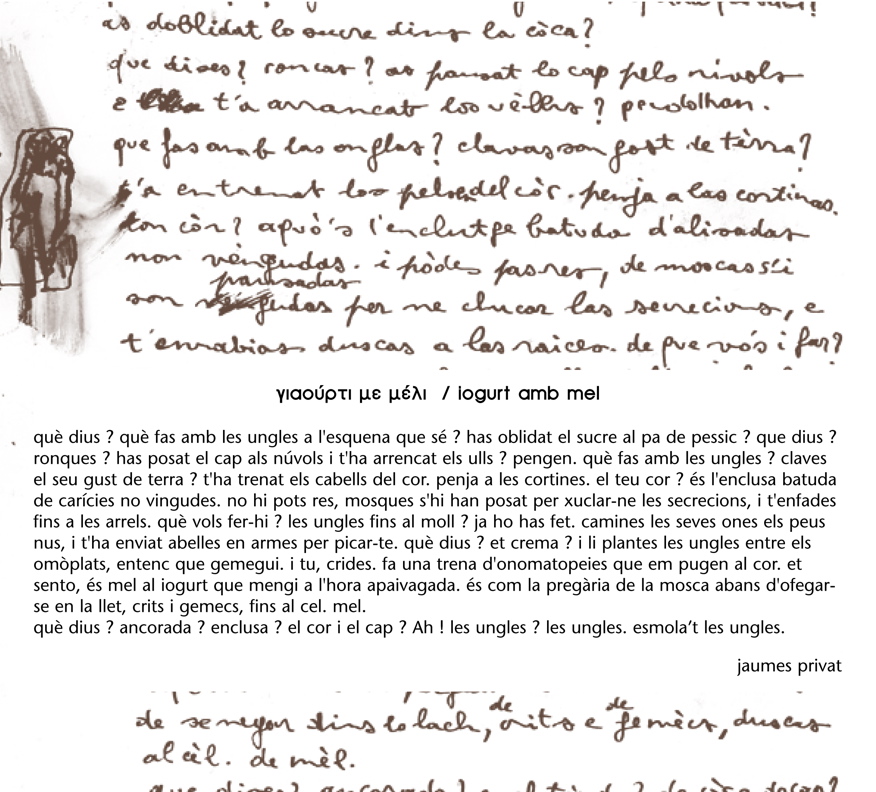 as doblidat lo sucre dins la còca?
que dises? roncas? as pausat lo cap pels nívols
e t'a arrancat los uèlhs? pendolhan.
que fas amb las onglas? clavas son gost de tèrra?
t'a entrenat los pels del còr. penja a las cortinas.
ton còr? aquò's l'enclutge batuda d'alisadas
non vengudas. i pòdes pas res, de moscas s'i
pausadas
son per ne chucar las secrecions, e
t'enrabias duscas a las raices. de que vòs i far?
γιαούρτι με μέλι / iogurt amb mel
què dius ? què fas amb les ungles a l'esquena que sé ? has oblidat el sucre al pa de pessic ? que dius ?
ronques ? has posat el cap als núvols i t'ha arrencat els ulls ? pengen. què fas amb les ungles ? claves
el seu gust de terra ? t'ha trenat els cabells del cor. penja a les cortines. el teu cor ? és l'enclusa batuda
de carícies no vingudes. no hi pots res, mosques s'hi han posat per xuclar-ne les secrecions, i t'enfades
fins a les arrels. què vols fer-hi ? les ungles fins al moll ? ja ho has fet. camines les seves ones els peus
nus, i t'ha enviat abelles en armes per picar-te. què dius ? et crema ? i li plantes les ungles entre els
omòplats, entenc que gemegui. i tu, crides. fa una trena d'onomatopeies que em pugen al cor. et
sento, és mel al iogurt que mengi a l'hora apaivagada. és com la pregària de la mosca abans d'ofegar-
se en la llet, crits i gemecs, fins al cel. mel.
què dius ? ancorada ? enclusa ? el cor i el cap ? Ah ! les ungles ? les ungles. esmola't les ungles.
jaumes privat
de se negar dins lo lach, de crits e de gemècs, duscas
al cèl. de mèl.